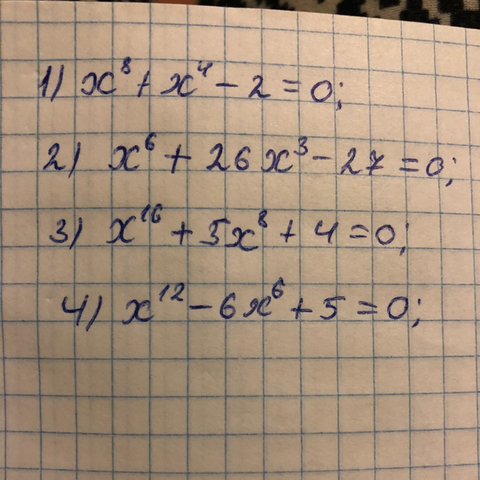 1) x⁸ + x⁴ - 2 = 0;
2) x⁶ + 26x³ - 27 = 0;
3) x¹⁶ + 5x⁸ + 4 = 0;
4) x¹² - 6x⁶ + 5 = 0;